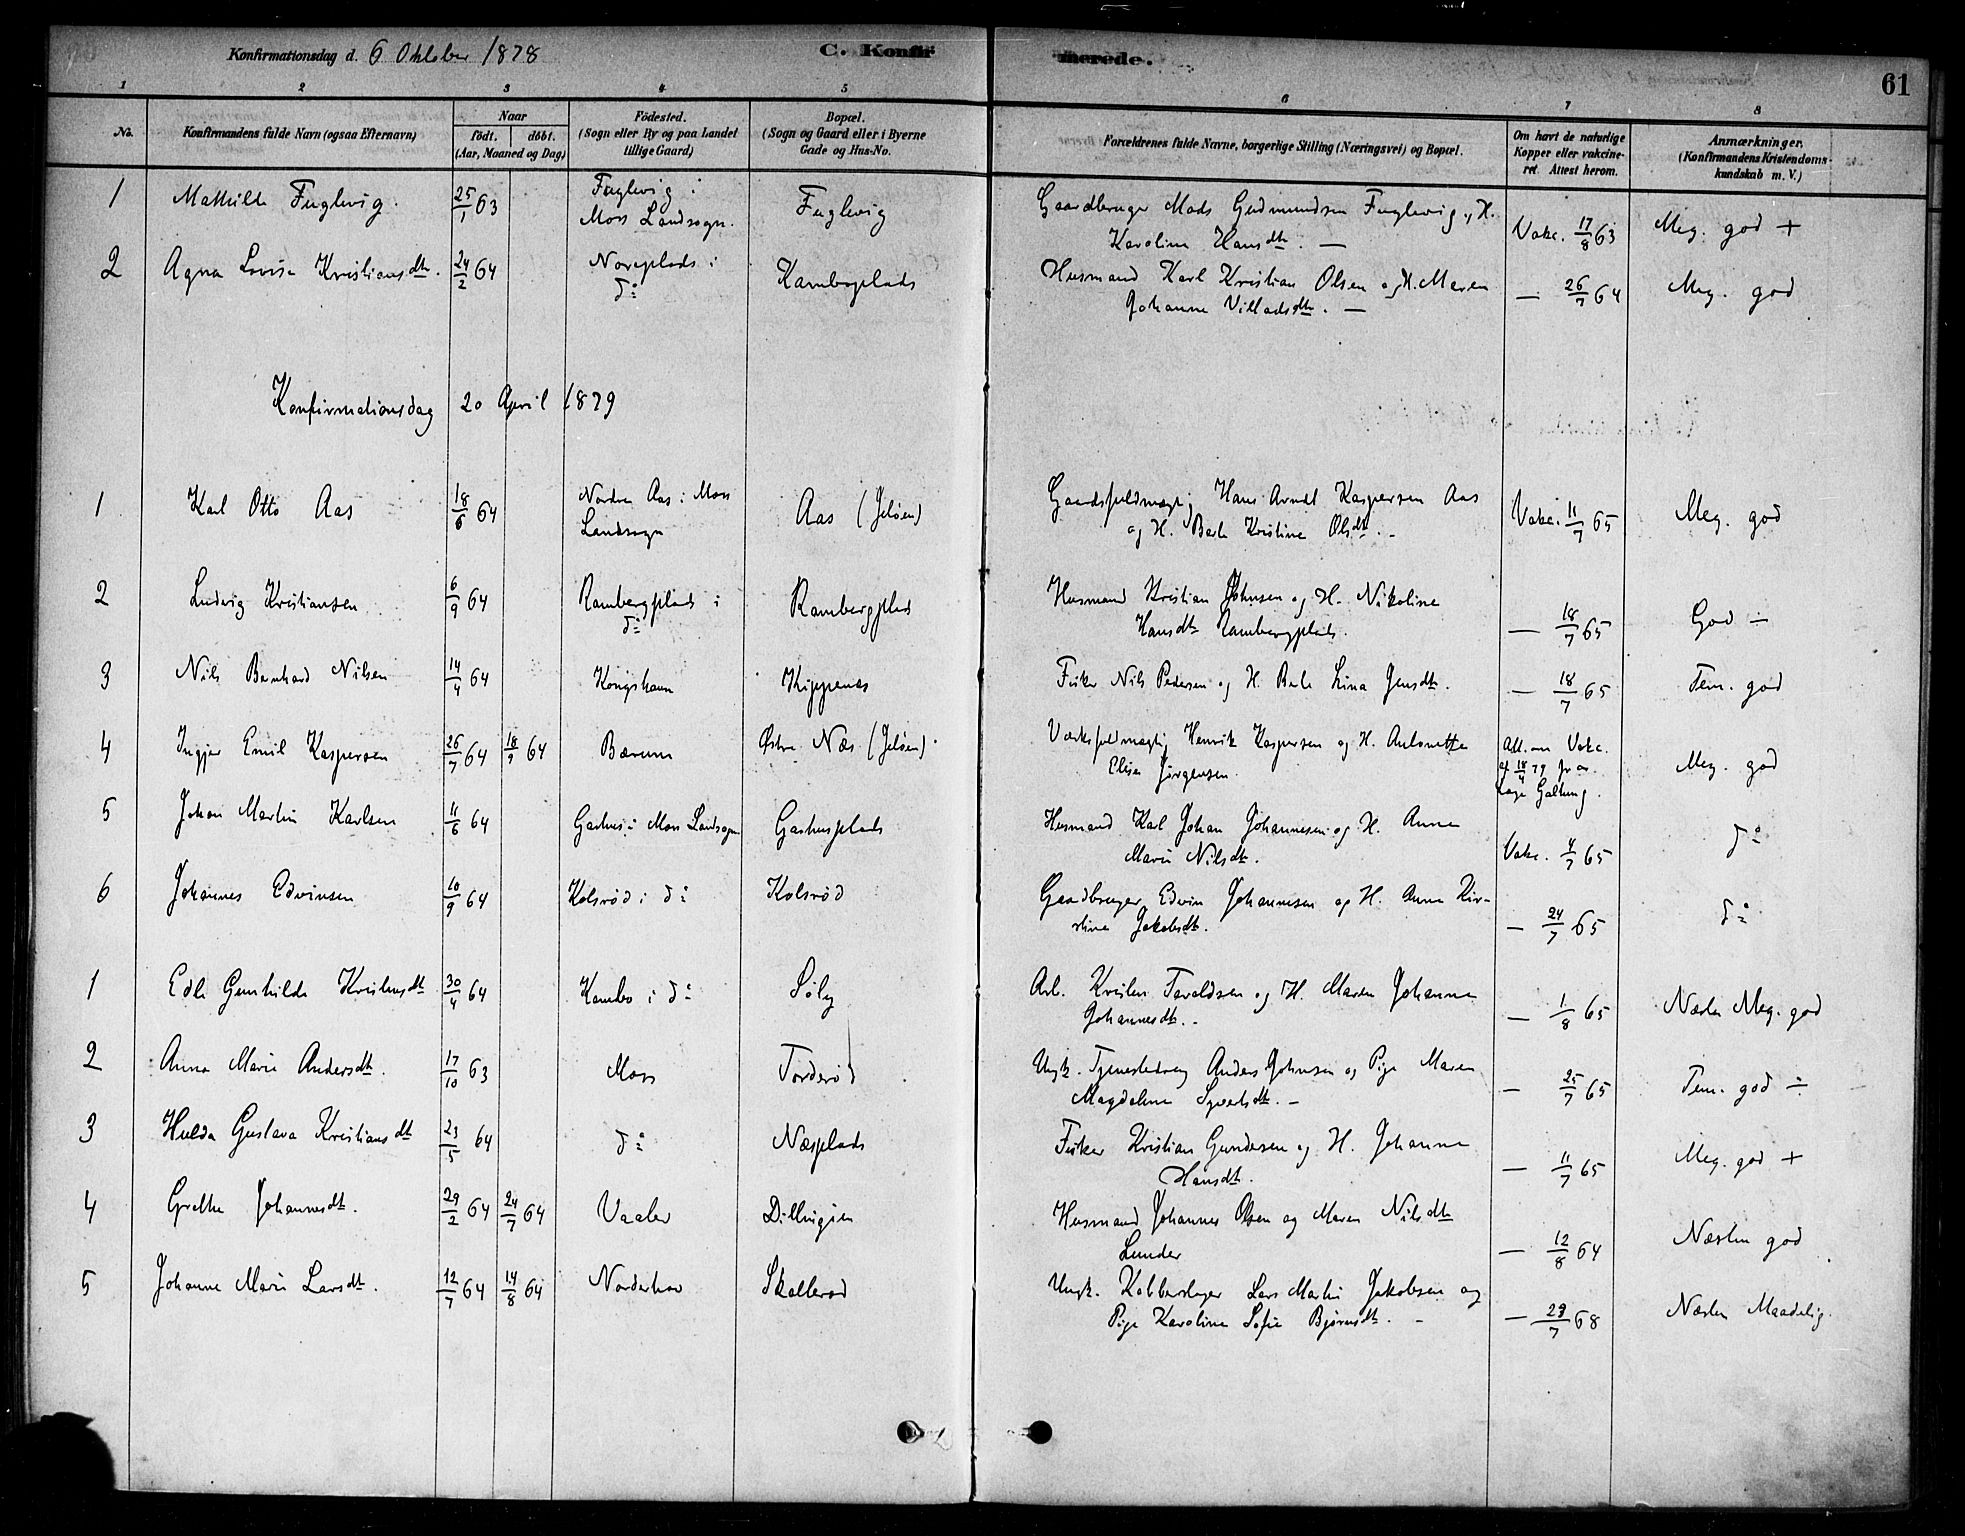 Konfirmationsdag d. 6 Oktober 1878 C. Konfirmerede. 61
1 2 3 4 5 6 7 8
No. Konfirmandens fulde Navn (ogsaa Efternavn) Naar födt. döbt. (Aar, Maaned og Dag) Födested. (Sogn eller By og paa Landet tillige Gaard) Bopæl. (Sogn og Gaard eller i Byerne Gade og Hus-No. Forældrenes fulde Navne, borgerlige Stilling (Næringsvei) og Bopæl. Om havt de naturlige Kopper eller vakcineret. Attest herom. Anmærkninger. (Konfirmandens Kristendomskundskab m. V.)
1 Mathilde Fuglevig. 25/1 63 Fuglevig i Moss Landsogn. Fuglevig Gaardbruger Mads Gudmundsen Fuglevig og H. Karoline Hansdtr. — Vakc. 17/8 63 Meg. god +
2 Agna Lovise Kristiansdtr. 24/2 64 Noreplads i do Kamboplads Husmand Karl Kristian Olsen og H. Maren Johanne Villadsdtr. — — 26/7 64 Meg. god
Konfirmationsdag 20 April 1879
1 Karl Otto Aas 18/6 64 Nordre Aas i Moss Landsogn Aas (Jeløen) Gaardsfuldmægtig Hans Arndt Kaspersen Aas og H. Berte Kristine Olsdtr. - Vakc. 11/7 65 Meg. god
2 Ludvig Kristiansen 6/9 64 Rambergplads i do Rambergplads Husmand Kristian Johnsen og H. Nikoline Hansdtr Rambergplads. — 18/7 65 God ÷
3 Nils Bernhard Nilsen 14/4 64 Kongshavn Kippenes Fisker Nils Pedersen og H. Berte Lina Jensdtr. — 18/7 65 Tem. god
4 Ingjer Emil Kaspersen 26/7 64 18/9 64 Bærum Østre Næs (Jeløen) Værksfuldmægtig Henrik Kaspersen og H. Antonette Elise Jørgensen. Att. om Vakc. af 18/4 79 fr. Læge Galtung. Meg. god
5 Johan Martin Karlsen 11/6 64 Garhus i Moss Landsogn Garhusplads Husmand Karl Johan Johannesen og H. Anne Marie Nilsdtr. Vakc. 4/7 65 do
6 Johannes Edvinsen 10/9 64 Kolsrød i do Kolsrød Gaardbruger Edvin Johannesen og H. Anne Kirstine Jakobsdtr. — 24/7 65 do
1 Edle Gunhilde Kristensdtr 30/4 64 Kambo i do Solby Arb. Kristen Taraldsen og H. Maren Johanne Johannesdtr. - — 1/8 65 Næsten Meg. god
2 Anna Marie Andersdtr. 17/10 63 Moss Torderød Ungk. Tjenestedreng Anders Johnsen og Pige Maren Magdalene Syvertsdtr. — — 25/7 65 Tem. god ÷
3 Hulda Gustava Kristiansdtr 23/5 64 do Næsplads Fisker Kristian Gundersen og H. Johanne Hansdtr. — 11/7 65 Meg. god +
4 Grethe Johannesdtr. 29/2 64 24/7 64 Vaaler Dillingøen Husmand Johannes Olsen og Maren Nilsdtr Lunder — 12/8 64 Næsten god
5 Johanne Marie Larsdtr. 12/7 64 14/8 64 Norderhov Skallerød Ungk. Kobberslager Lars Martin Jakobsen og Pige Karoline Sofie Bjørnsdtr. - — 29/7 68 Næsten Maadelig.